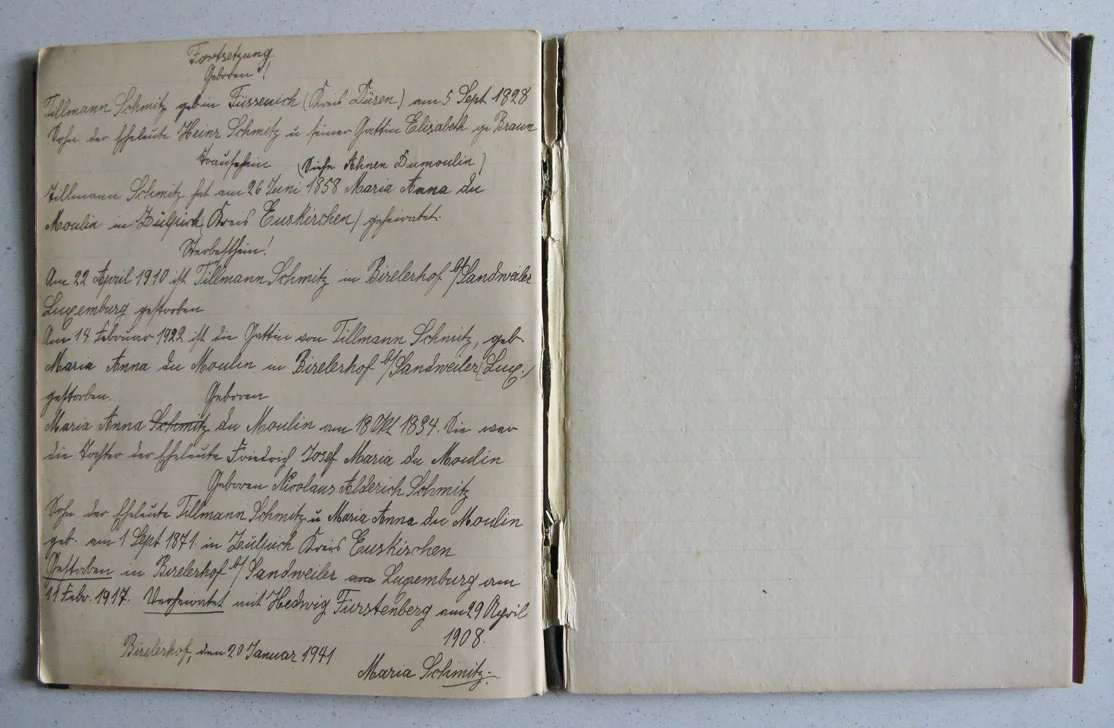 Fortsetzung
Geboren!
Tillmann Schmitz geb in Füssenich (Kreis Düren) am 5 Sept 1828
Sohn der Eheleute Heinr Schmitz u seiner Gattin Elisabeth ge Braun
Trauschein (Siehe Ahnen Dumoulin)
Tillmann Schmitz hat am 26 Juni 1858 Maria Anna du
Moulin in Zülpich (Kreis Euskirchen) geheiratet.
Sterbeschein!
Am 22 April 1910 ist Tillmann Schmitz in Birelerhof b/Sandweiler
Luxemburg gestorben
Am 14 Februar 1922 ist die Gattin von Tillmann Schmitz, geb.
Maria Anna du Moulin in Birelerhof b/Sandweiler (Lux.)
gestorben. Geboren
Maria Anna Schmitz du Moulin am 18 Okt 1834. Sie war
die Tochter der Eheleute Friedrich Josef Maria du Moulin
Geboren Nicolaus Alderich Schmitz
Sohn der Eheleute Tillmann Schmitz u Maria Anna du Moulin
geb. am 1 Sept 1871 in Zülpich Kreis Euskirchen
Gestorben in Birelerhof b/Sandweiler Luxemburg am
11 Febr. 1917. Verheiratet mit Hedwig Fürstenberg am 29 April
1908.
Birelerhof, den 20 Januar 1941
Maria Schmitz.